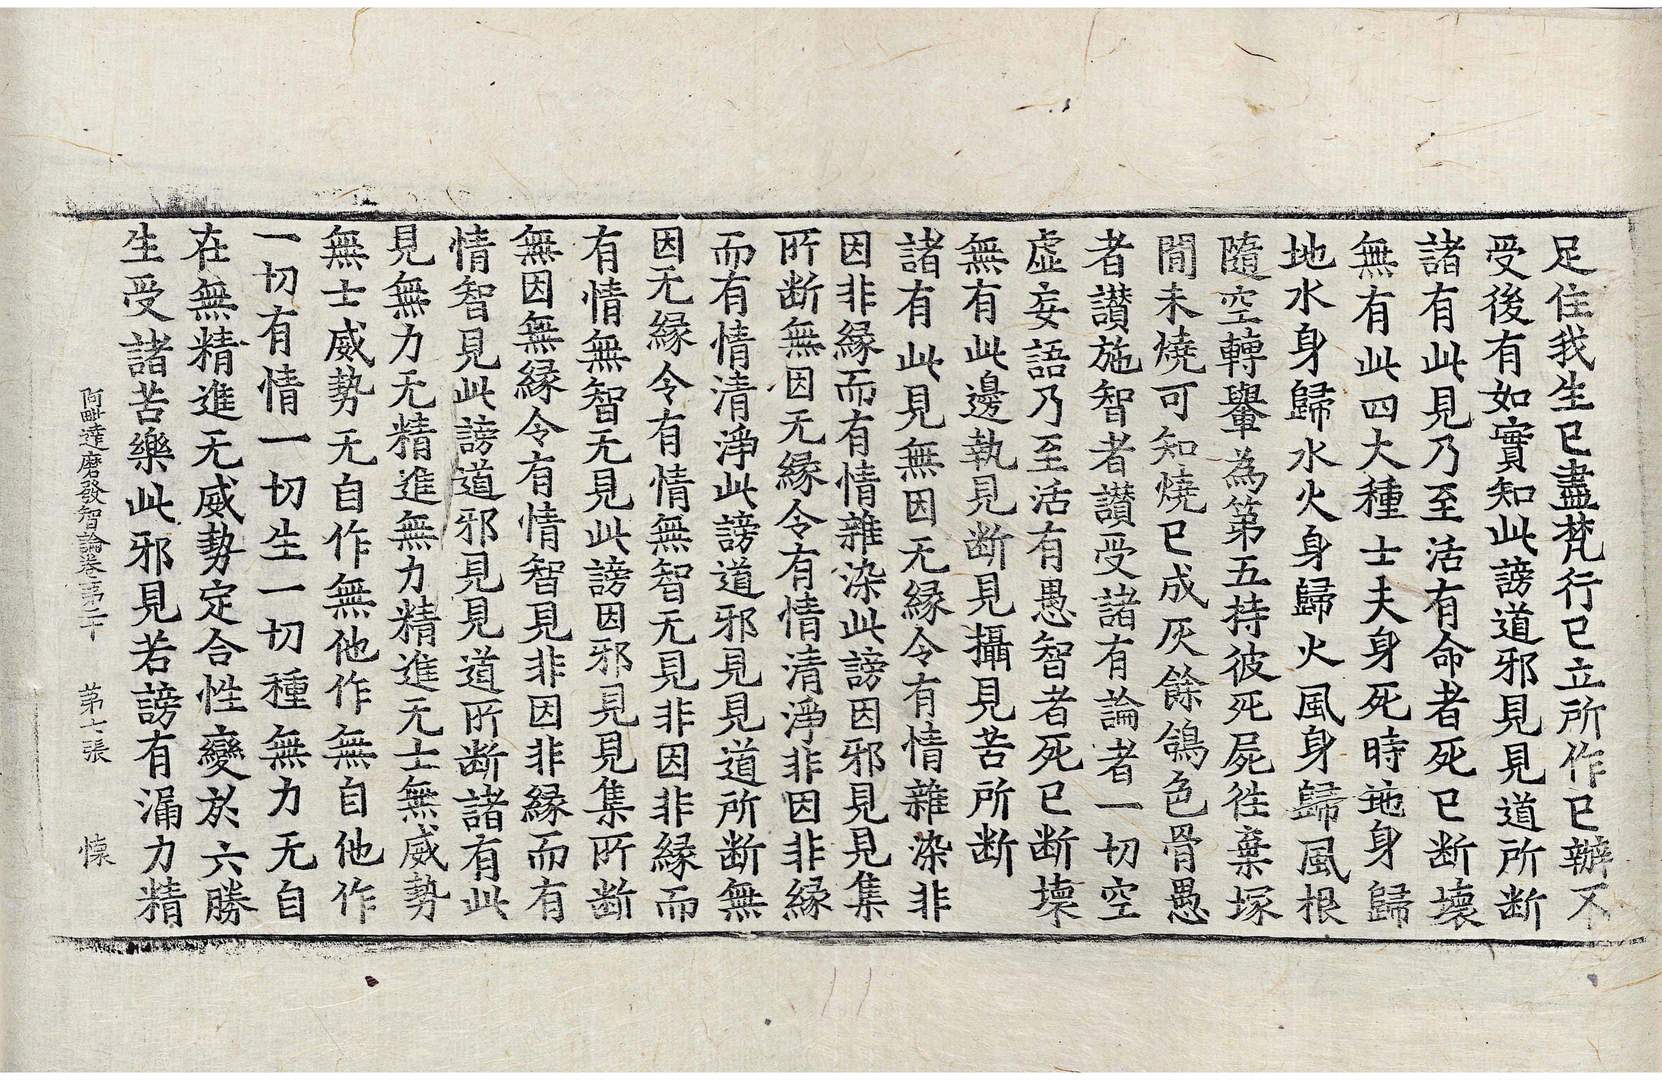 足住我生已盡梵行已立所作已辦不
受後有如實知此謗道邪見見道所断
諸有此見乃至活有命者死已断壞
無有此四大種士夫身死時地身歸
地水身歸水火身歸火風身歸風根
隨空轉轝為第五持彼死屍徃棄塚
間未燒可知燒已成灰餘鴿色骨愚
者讃施智者讃受諸有論者一切空
虛妄語乃至活有愚智者死已断壞
無有此邊執見断見攝見苦所断
諸有此見無因无緣令有情雜染非
因非緣而有情雜染此謗因邪見見集
所断無因无緣令有情清淨非因非緣
而有情清淨此謗道邪見見道所断無
因无緣令有情無智无見非因非緣而
有情無智无見此謗因邪見見集所断
無因無緣令有情智見非因非緣而有
情智見此謗道邪見見道所断諸有此
見無力无精進無力精進无士無威勢
無士威勢无自作無他作無自他作
一切有情一切生一切種無力无自
在無精進无威勢定合性變於六勝
生受諸苦樂此邪見若謗有漏力精
阿毗達磨發智論卷第二十 第七張 懷